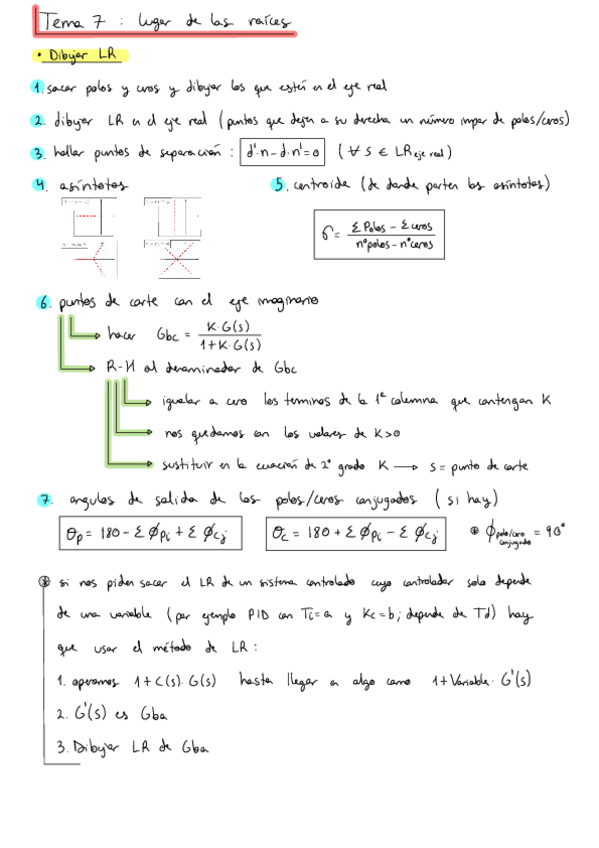 Tema 7 : lugar de las raíces
• Dibujar LR
1. sacar polos y ceros y dibujar los que estén en el eje real
2. dibujar LR en el eje real (puntos que dejen a su derecha un número impar de polos/ceros)
3. hallar puntos de separación : d'·n - d·n' = 0 (∀ s ∈ LR eje real)
4. asíntotas
5. centroide (de donde parten las asíntotas)
σ = (Σ Polos - Σ ceros) / (nº polos - nº ceros)
6. puntos de corte con el eje imaginario
hacer Gbc = K·G(s) / (1+K·G(s))
R-H al denominador de Gbc
igualar a cero los terminos de la 1ª columna que contengan K
nos quedamos con los valores de K>0
sustituir en la ecuación de 2º grado K → s = punto de corte
7. angulos de salida de los polos/ceros conjugados (si hay)
θp = 180 - Σ ϕpi + Σ ϕcj
θc = 180 + Σ ϕpi - Σ ϕcj
⊛ ϕ polo/cero conjugado = 90°
⊛ si nos piden sacar el LR de un sistema controlado cuyo controlador solo depende
de una variable (por ejemplo PID con Ti=a y Kc=b; depende de Td) hay
que usar el método de LR :
1. operamos 1+C(s)·G(s) hasta llegar a algo como 1+Variable·G'(s)
2. G'(s) es Gba
3. Dibujar LR de Gba